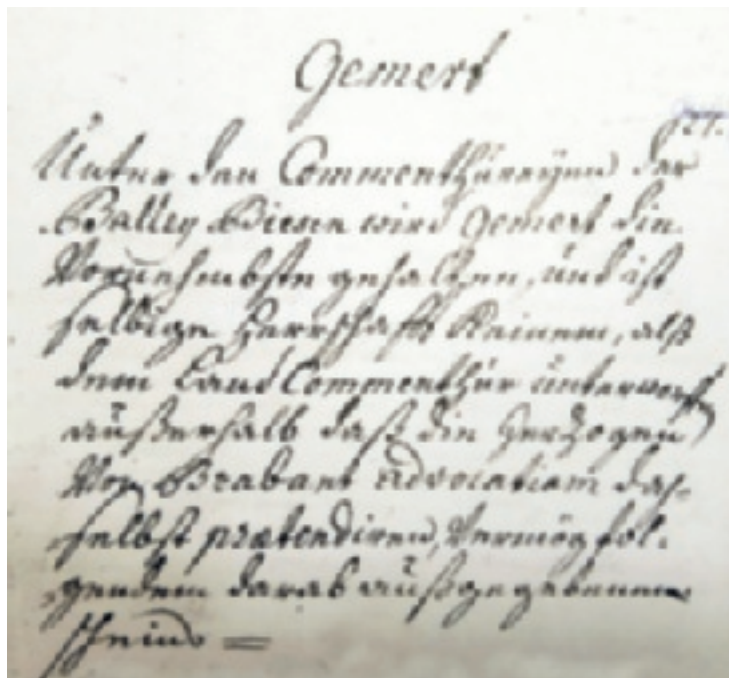 Gemert
121.
Unter den Commenthüreyen der
Balley Biesen wird Gemert die
Vornehmbste gehalten, und ist
selbige Herrschafft Keinem, alß
dem Land Commenthür unterworffen
außerhalb daß die Hertzogen
Von Brabant advocatiam da-
selbst prætendiren, Vermög fol-
gendem darab außgegebenem
schein.